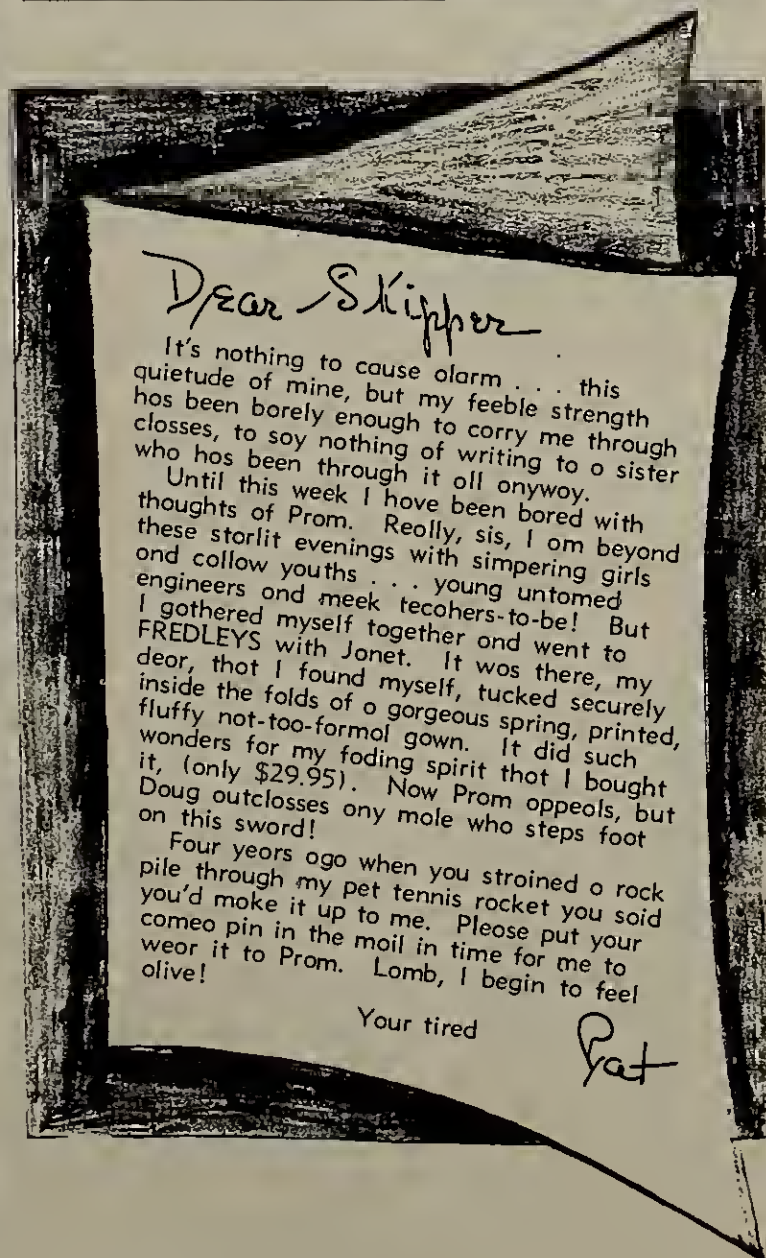 Dear Skipper
It's nothing to couse olorm . . . this
quietude of mine, but my feeble strength
hos been borely enough to corry me through
closses, to soy nothing of writing to o sister
who hos been through it oll onywoy.
Until this week I hove been bored with
thoughts of Prom. Reolly, sis, I om beyond
these storlit evenings with simpering girls
ond collow youths . . . young untomed
engineers ond meek tecohers-to-be! But
I gothered myself together ond went to
FREDLEYS with Jonet. It wos there, my
deor, thot I found myself, tucked securely
inside the folds of o gorgeous spring, printed,
fluffy not-too-formol gown. It did such
wonders for my foding spirit thot I bought
it, (only $29.95). Now Prom oppeols, but
Doug outclosses ony mole who steps foot
on this sword!
Four yeors ogo when you stroined o rock
pile through my pet tennis rocket you soid
you'd moke it up to me. Pleose put your
comeo pin in the moil in time for me to
weor it to Prom. Lomb, I begin to feel
olive!
Your tired
Pat